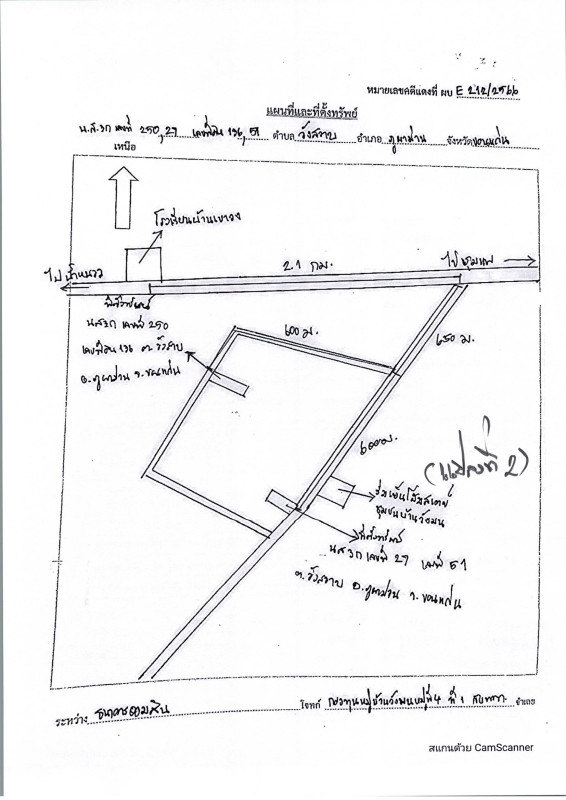 หมายเลขคดีแดงที่ ผบ E 212/2566
แผนที่และที่ตั้งทรัพย์
น.ส.3ก เลขที่ 250,27 เลขที่ดิน 136,51 ตำบล วังสวาบ อำเภอ ภูผาม่าน จังหวัด ขอนแก่น
เหนือ
โรงเรียนบ้านเขาวง
2.1 กม.
ไปชุมแพ
ไปน้ำหนาว
ที่ตั้งทรัพย์
นส3ก เลขที่ 250
เลขที่ดิน 136 ต.วังสวาบ
อ.ภูผาม่าน จ.ขอนแก่น
600 ม.
650 ม.
600ม.
(แปลงที่ 2)
ร่มเย็นโฮมสเตย์
ชุมชนบ้านวังมน
ที่ตั้งทรัพย์
นส3ก เลขที่ 27 เลขที่ 51
ต.วังสวาบ อ.ภูผาม่าน จ.ขอนแก่น
ระหว่าง ธนาคารออมสิน โจทก์ กองทุนหมู่บ้านวังมนหมู่ที่4 ที่ 1 กับพวก จำเลย
สแกนด้วย CamScanner